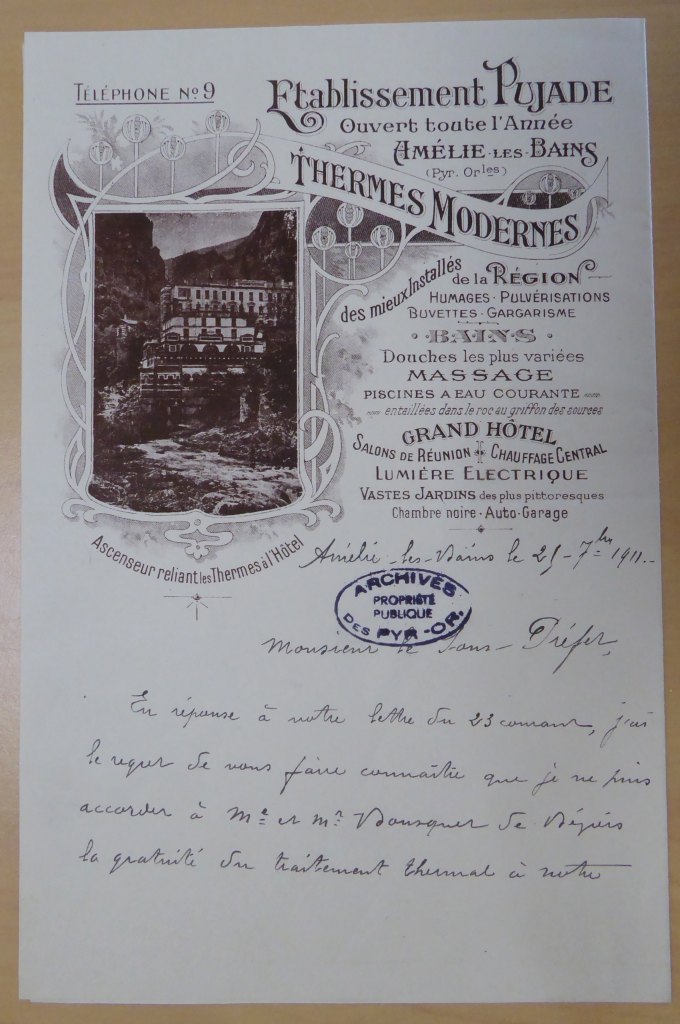 TÉLÉPHONE No 9
Etablissement PUJADE
Ouvert toute l'Année
AMÉLIE-LES-BAINS
(Pyr. Orles)
THERMES MODERNES
des mieux Installés
de la RÉGION
HUMAGES · PULVÉRISATIONS
BUVETTES · GARGARISME
· BAINS ·
Douches les plus variées
MASSAGE
PISCINES A EAU COURANTE
entaillées dans le roc au griffon des sources
GRAND HÔTEL
SALONS DE RÉUNION CHAUFFAGE CENTRAL
LUMIÈRE ELECTRIQUE
VASTES JARDINS des plus pittoresques
Chambre noire · Auto-Garage
Ascenseur reliant les Thermes à l'Hôtel
Amélie-les-Bains le 25 - 7bre 1911.
ARCHIVES
PROPRIÉTÉ
PUBLIQUE
DES PYR-OR.
Monsieur le Sous-Préfet,
En réponse à votre lettre du 23 courant, j'ai
le regret de vous faire connaître que je ne puis
accorder à Me et Mr Bousquet de Béziers
la gratuité du traitement thermal à notre